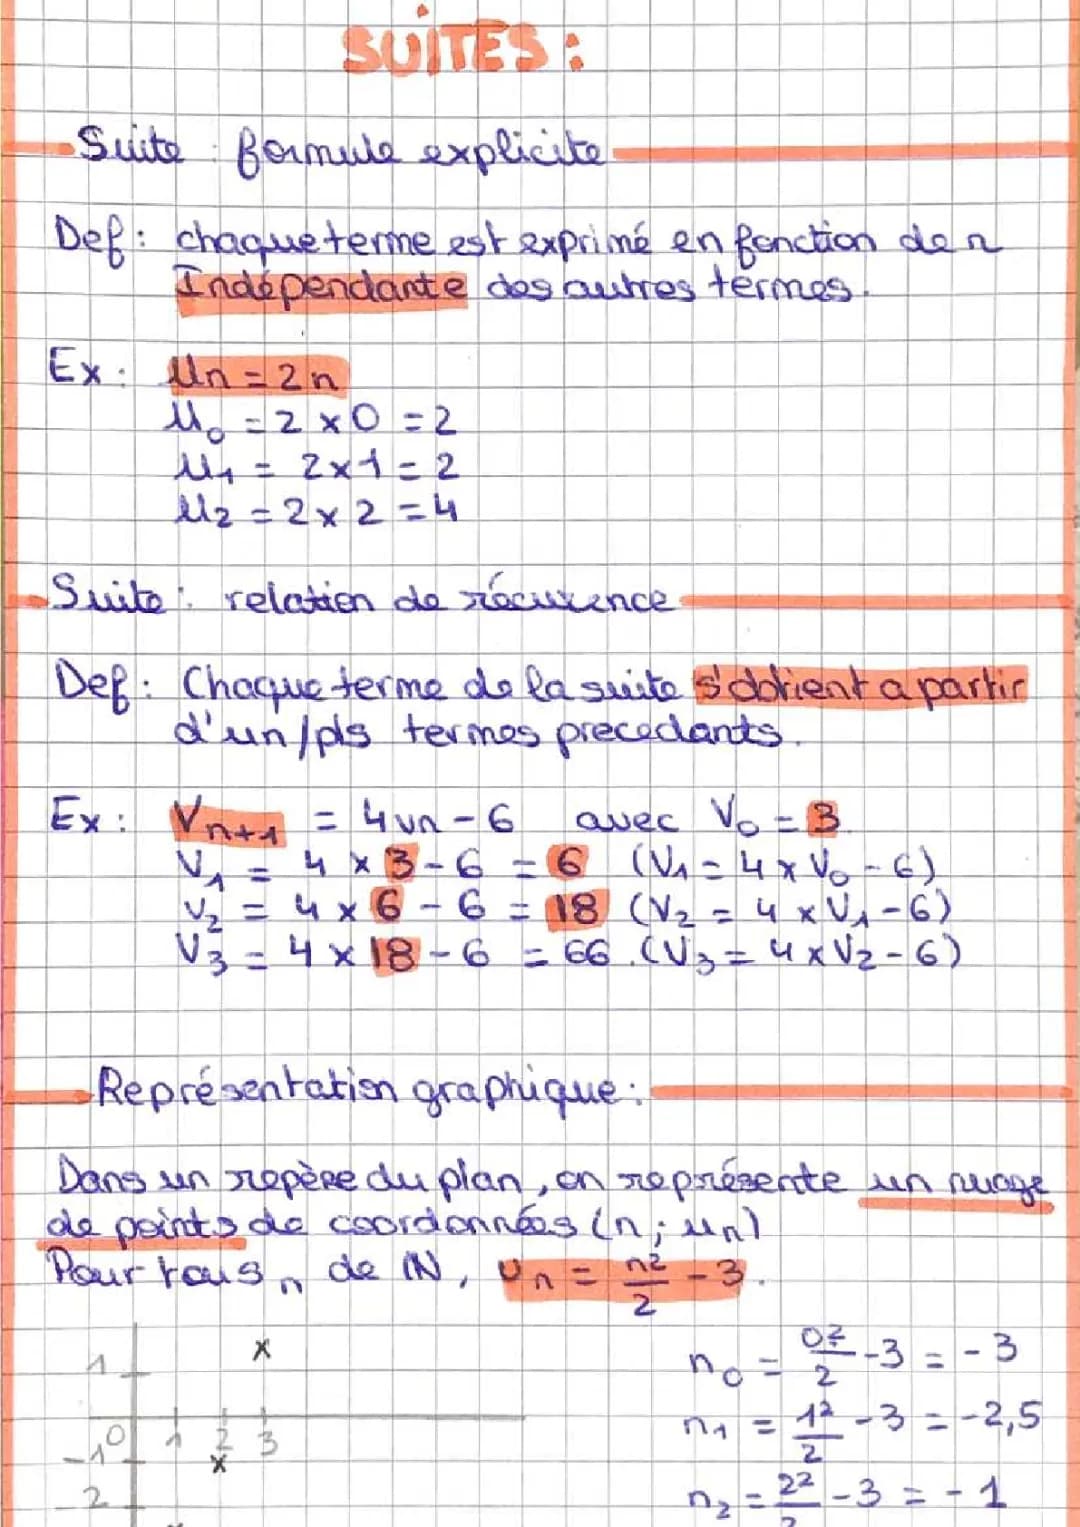 SUITES :
Suite : formule explicite
Def : chaque terme est exprimé en fonction de n
Indépendante des autres termes.
Ex : Un = 2n
U₀ = 2 × 0 = 2
U₁ = 2×1 = 2
U₂ = 2 × 2 = 4
Suite : relation de récurence
Def : Chaque terme de la suite s'obtient a partir
d'un/pls termes precedants.
Ex : Vₙ₊₁ = 4vn - 6 avec V₀ = 3
V₁ = 4 × 3 - 6 = 6 (V₁ = 4 × V₀ - 6)
V₂ = 4 × 6 - 6 = 18 (V₂ = 4 × V₁ - 6)
V₃ = 4 × 18 - 6 = 66. (V₃ = 4 × V₂ - 6)
Représentation graphique :
Dans un repère du plan, on représente un nuage
de points de coordonnées (n ; un)
Pour tous n de ℕ, Un = n²/2 - 3.
n₀ = 0²/2 - 3 = - 3
n₁ = 1²/2 - 3 = -2,5
n₂ = 2²/2 - 3 = - 1
1
0 1 2 3
-1
-2